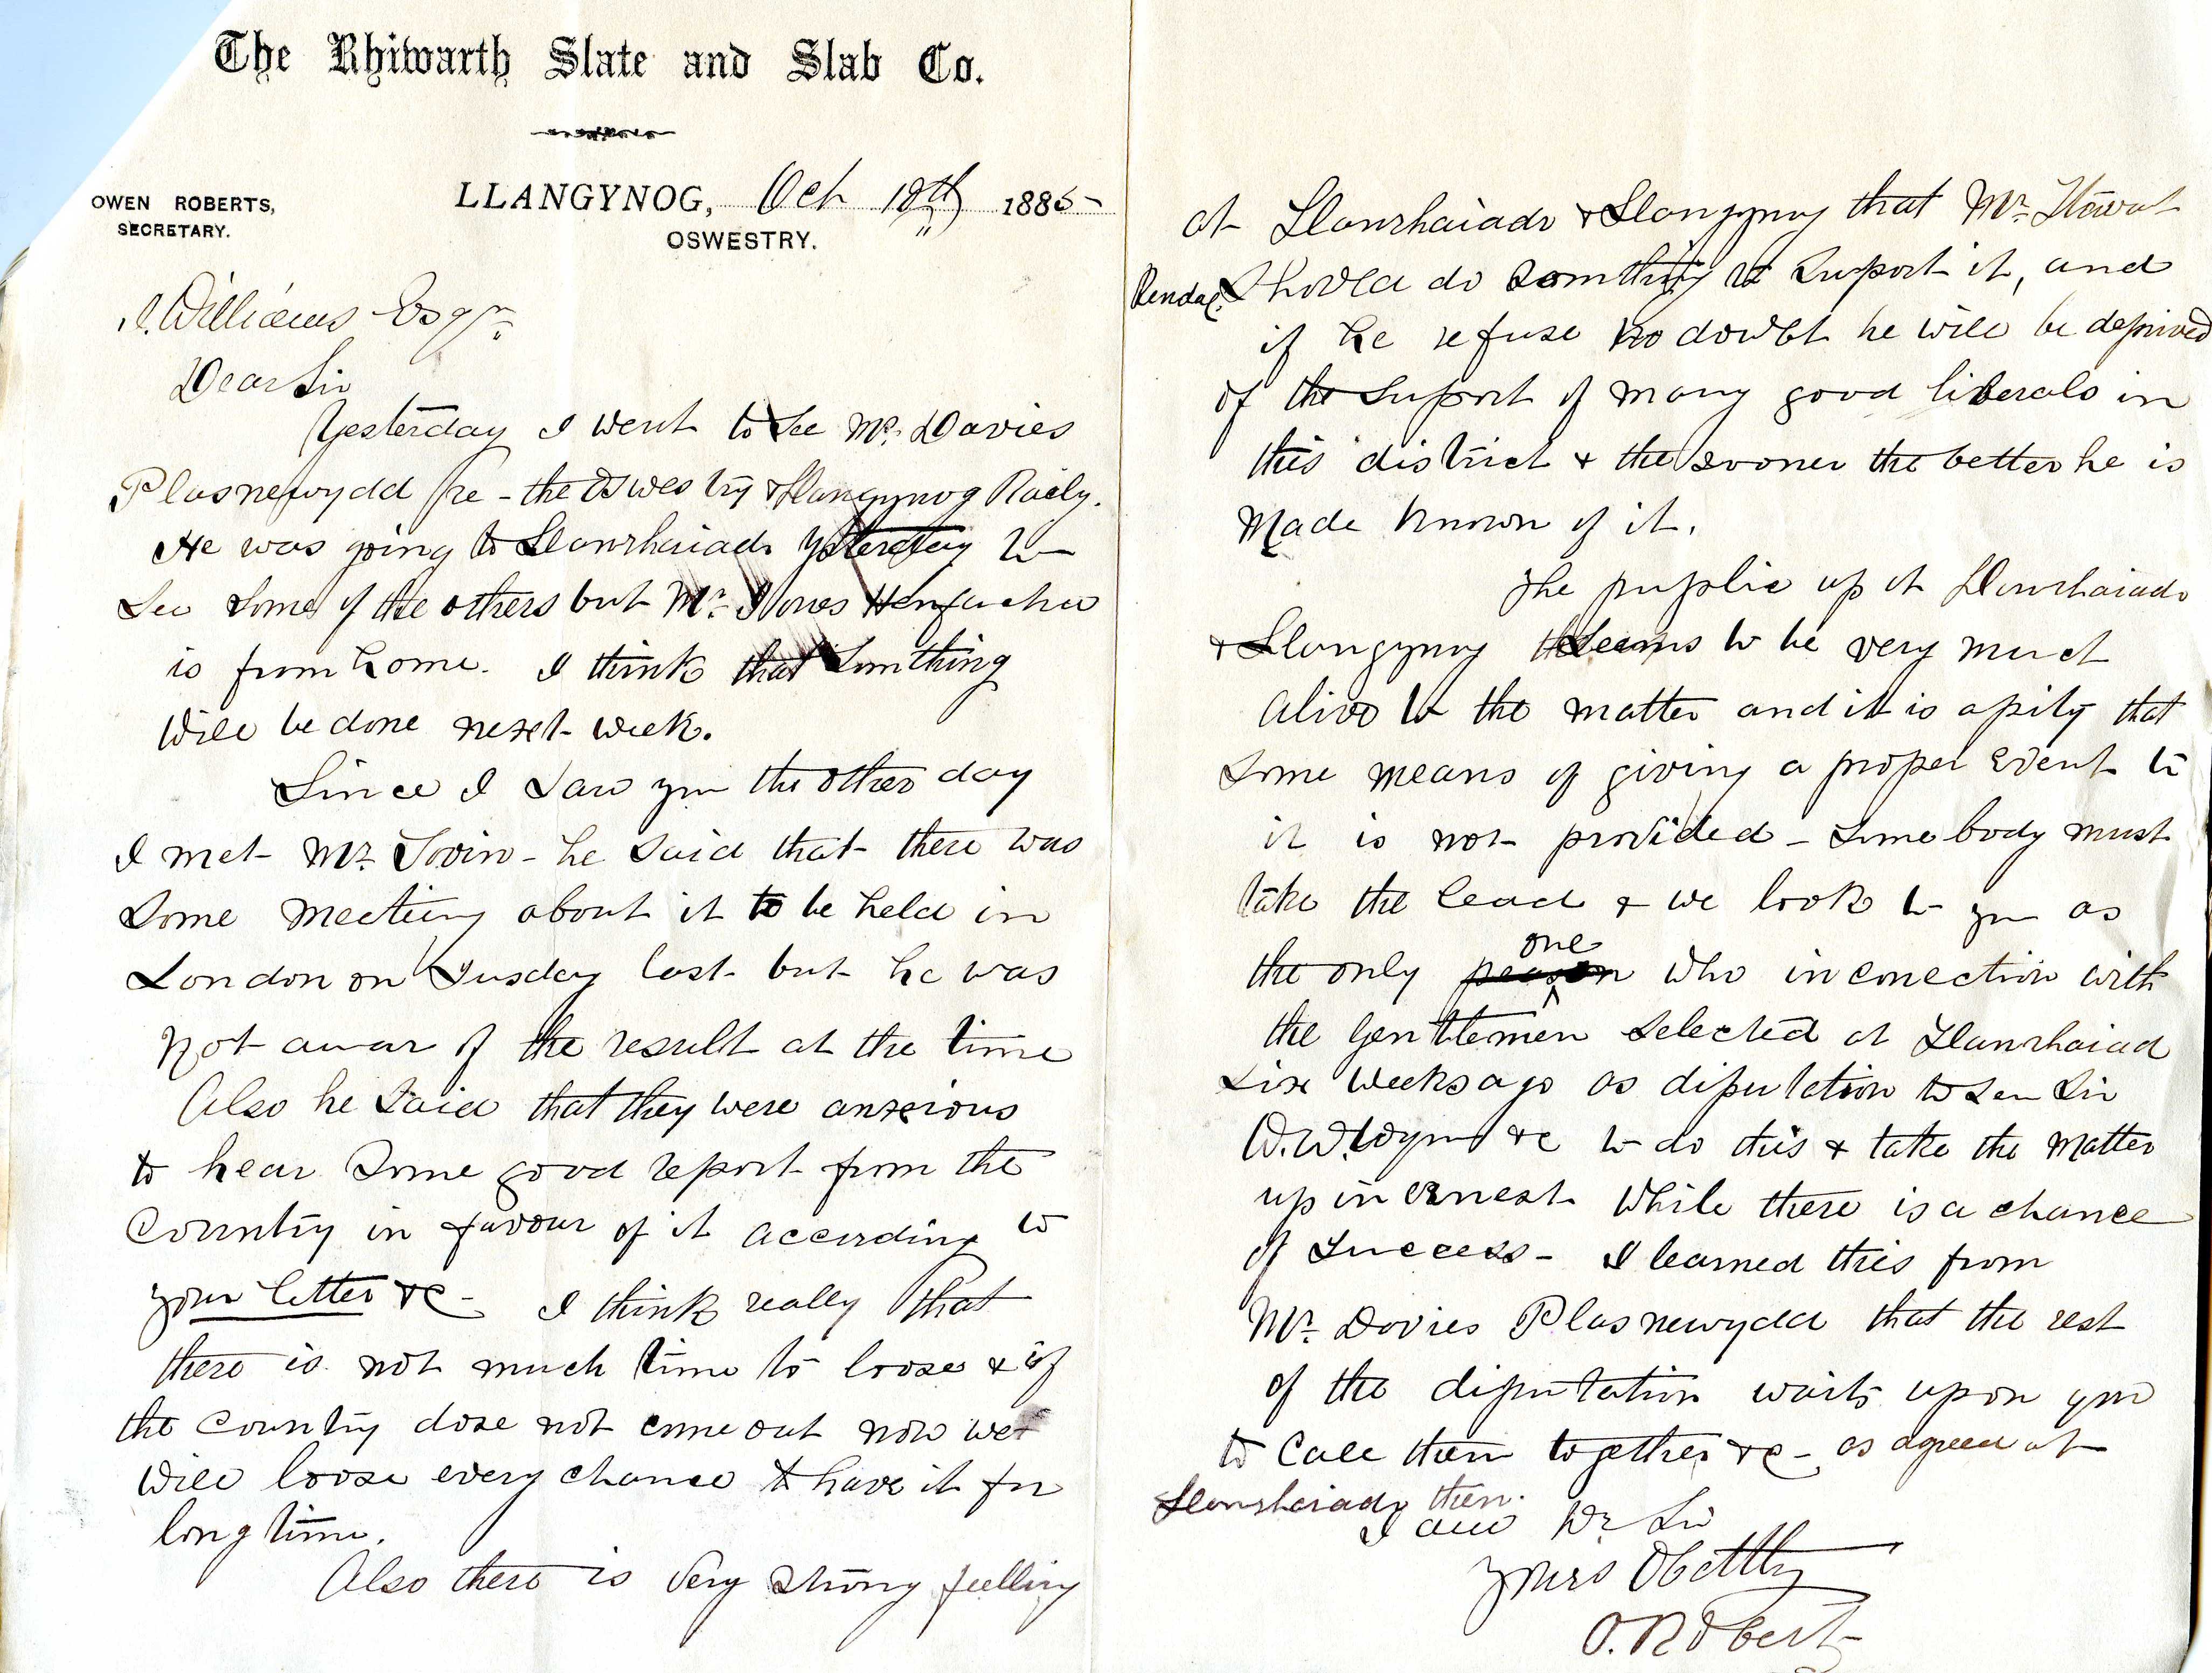 The Rhiwarth Slate and Slab Co.
OWEN ROBERTS,
SECRETARY.
LLANGYNOG, Oct 18th 1885
OSWESTRY.
J. Williams Esqr.
Dear Sir
Yesterday I went to see Mr. Davies
Plasnewydd re - the Oswestry & Llangynog Raily.
He was going to Llanrhaiadr yesterday to
see some of the others but Mr. Jones Henfache
is from home. I think that somthing
will be done next week.
Since I saw you the other day
I met Mr. - he said that there was
some meeting about it to be held in
London on Tusday last but he was
not awar of the result at the time
Also he said that they were anxious
to hear some good report from the
Country in favour of it according to
your letter &c - I think really that
there is not much time to loose & if
the Country dose not come out now we
will loose every chance to have it for
long time.
Also there is very strong feelling
at Llanrhaiadr & Llangynog that Mr. Stewart
Rendal should do somthing to suport it, and
if he refuse no doubt he will be deprived
of the suport of many good liberals in
this district & the sooner the better he is
made known of it.
The puplic up at Llanrhaiadr
& Llangynog seems to be very much
alive to the matter and it is a pity that
some means of giving a proper event to
it is not provided - some body must
take the lead & we look to you as
the only person one who in conection with
the gentlemen selected at Llanrhaiad
six weeks ago as diputation to see Sir
W.W. Wynn &c to do this & take the matter
up in ernest while there is a chance
of success - I learned this from
Mr. Davies Plasnewydd that the rest
of the diputation waits upon you
to call them together &c - as agreed at
Llanrhaiadr then.
I am Dr Sir
Yours Obettly
O. Roberts